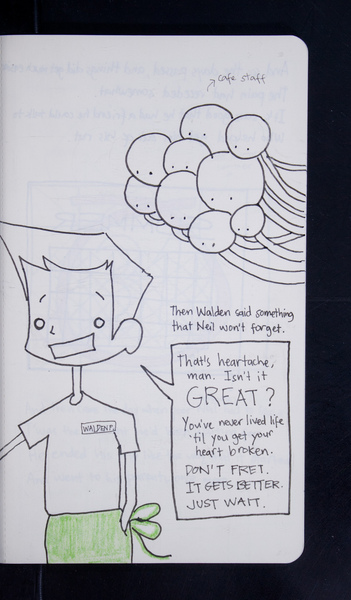 cafe staff
Then Walden said something
that Neil won't forget.
That's heartache,
man. Isn't it
GREAT?
You've never lived life
'til you get your
heart broken.
DON'T FRET.
IT GETS BETTER.
JUST WAIT.
WALDEN P.